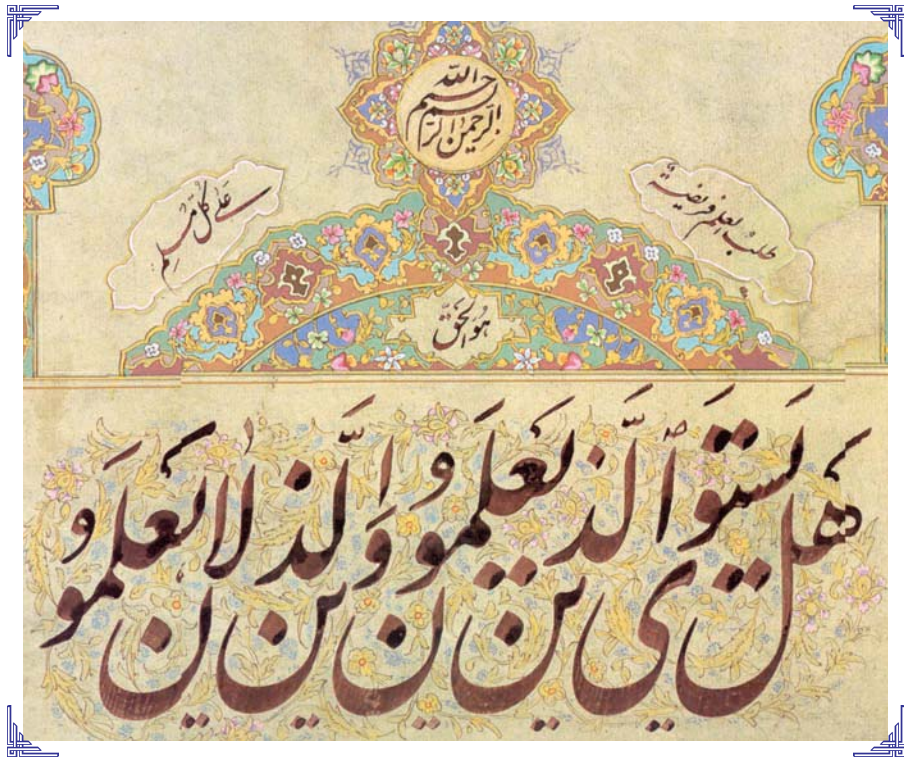 بسم الله الرحمن الرحیم
طلب العلم فریضة
علی کل مسلم
هو الحق
هَل یَستَوی ٱلَّذینَ یَعلَمونَ وَالَّذینَ لا یَعلَمونَ